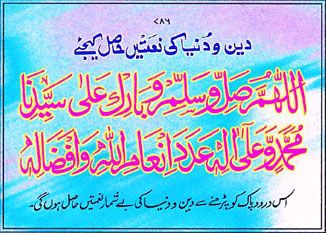 ۷۸۶
دین و دُنیا کی نعمتیں حاصل کیجئے
اَللّٰهُمَّ صَلِّ وَسَلِّمْ وَبَارِكْ عَلٰى سَيِّدِنَا
مُحَمَّدٍ وَّعَلٰى اٰلِهٖ عَدَدَ اِنْعَامِ اللّٰهِ وَاَفْضَالِهٖ
اس درود پاک کو پڑھنے سے دین و دنیا کی بے شمار نعمتیں حاصل ہوں گی۔